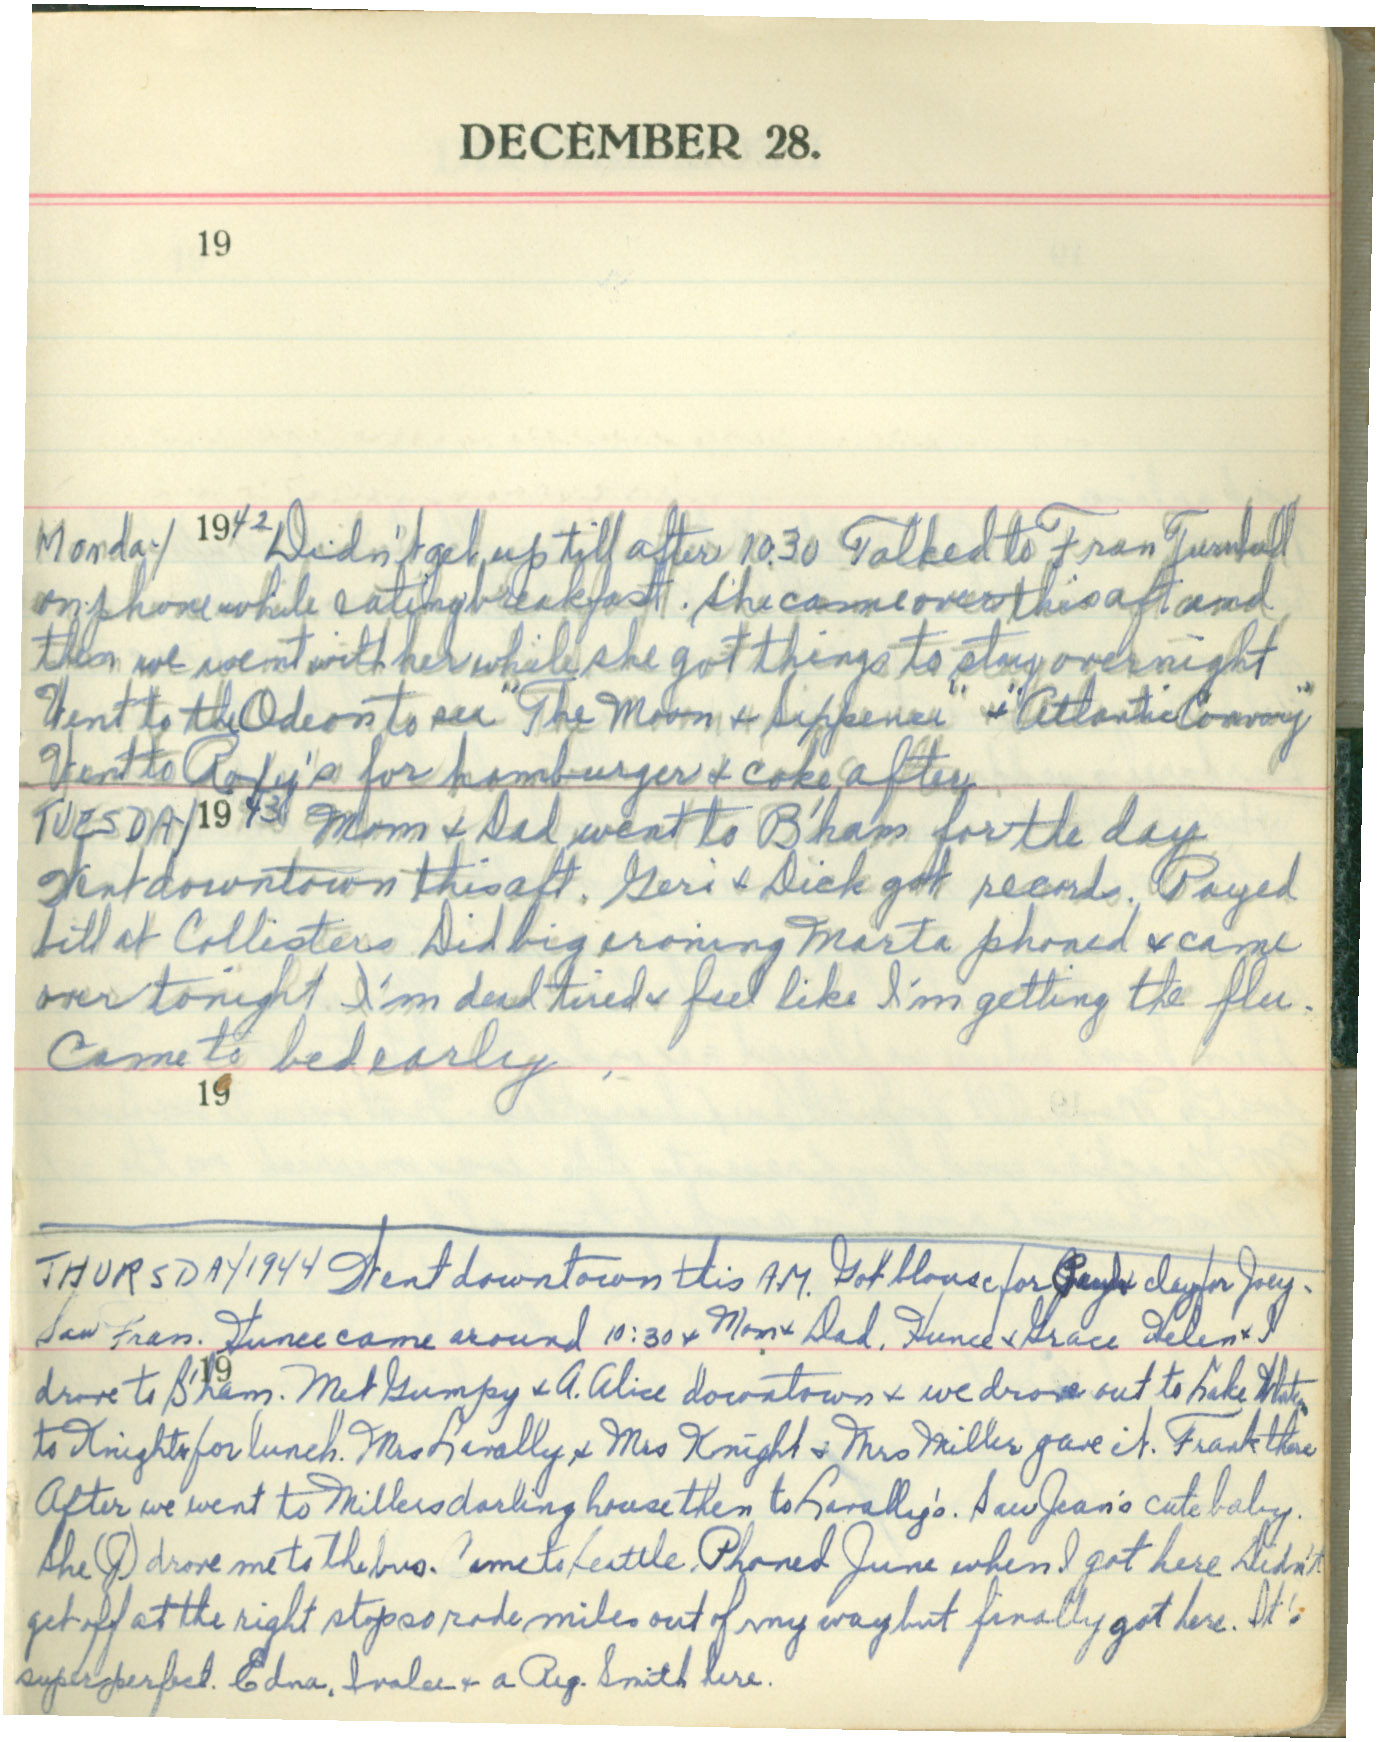 DECEMBER 28.
19
Monday 1942 Didn't get up till after 10.30 Talked to Fran Turnbull
on phone while eating breakfast. She came over this aft and
then we went with her while she got things to stay overnight
Went to the Odeon to see "The Moon & Sixpence" & "Atlantic Convoy"
Went to for hamburger & coke after
TUESDAY 1943 Mom & Dad went to B'ham for the day
Went downtown this aft. Geri & Dick got records. Payed
bill at Collisters Did big ironing Marta phoned & came
over tonight I'm dead tired & feel like I'm getting the flu.
Came to bed early.
19
THURSDAY 1944 Went downtown this A.M. Got blouse for clay for Joey.
Saw Fran. came around 10:30 & Mom & Dad, & Grace Helen & I
19
drove to B'ham. Met Gumpy & A. Alice downtown & we drove out to Lake
to Knights for lunch. Mrs Lavally & Mrs Knight & Mrs Miller gave it. Frank there
After we went to Millers darling house then to Lavally's. Saw Jean's cute baby.
She (J) drove me to the bus. Came to Seattle. Phoned June when I got here Didn't
get off at the right stop so rode miles out of my way but finally got here. It's
super perfect. Edna, & a Reg. Smith here.